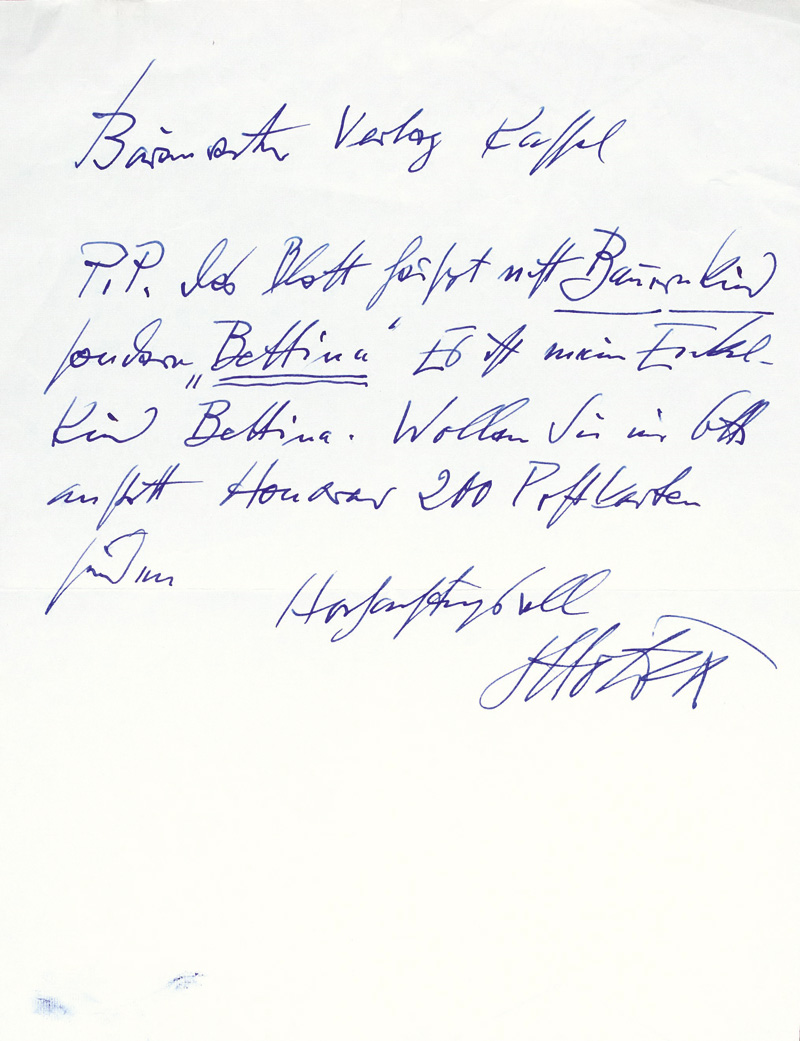 Bärenreiter Verlag Kassel
P.P. Das Blatt heißt nicht Bauernkind
sondern „Bettina“ Es ist mein Enkel-
Kind Bettina. Wollen Sie mir bitte
anstatt Honorar 200 Postkarten
senden
Hochachtungsvoll
Otto Dix